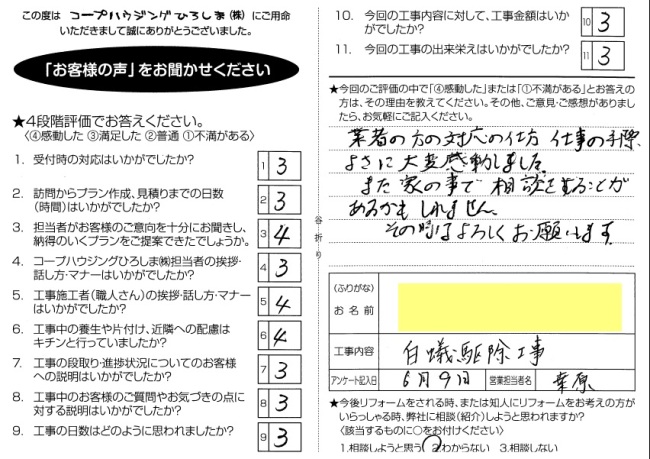 この度は コープハウジングひろしま(株) にご用命
いただきまして誠にありがとうございました。
「お客様の声」をお聞かせください
★4段階評価でお答えください。
〈④感動した ③満足した ②普通 ①不満がある〉
1. 受付時の対応はいかがでしたか? 1 3
2. 訪問からプラン作成、見積りまでの日数
(時間)はいかがでしたか? 2 3
3. 担当者がお客様のご意向を十分にお聞きし、
納得のいくプランをご提案できたでしょうか。 3 4
4. コープハウジングひろしま㈱担当者の挨拶・
話し方・マナーはいかがでしたか? 4 3
5. 工事施工者(職人さん)の挨拶・話し方・マナー
はいかがでしたか? 5 4
6. 工事中の養生や片付け、近隣への配慮は
キチンと行っていましたか? 6 4
7. 工事の段取り・進捗状況についてのお客様
への説明はいかがでしたか? 7 3
8. 工事中のお客様のご質問やお気づきの点に
対する説明はいかがでしたか? 8 3
9. 工事の日数はどのように思われましたか? 9 3
谷折り
10. 今回の工事内容に対して、工事金額はいか
がでしたか? 10 3
11. 今回の工事の出来栄えはいかがでしたか? 11 3
★今回のご評価の中で「④感動した」または「①不満がある」とお答えの
方は、その理由を教えてください。その他、ご意見・ご感想がありました
ら、お気軽にご記入ください。
業者の方の対応の仕方 仕事の手際、
よさに大変感動しました。
また家の事で相談をすることが
あるかもしれません。
その時はよろしくお願いします。
(ふりがな)
お名前
工事内容 白蟻駆除工事
アンケート記入日 6月9日 営業担当者名 桑原
★今後リフォームをされる時、または知人にリフォームをお考えの方が
いらっしゃる時、弊社に相談(紹介)しようと思われますか?
〈該当するものに○をお付けください〉
1.相談しようと思う 2.わからない 3.相談しない